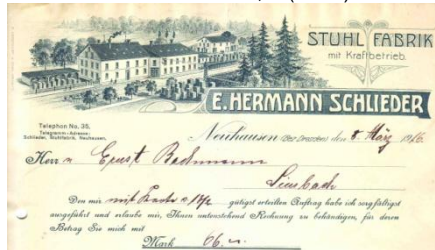 STUHL FABRIK
mit Kraftbetrieb.
E. HERMANN SCHLIEDER
Telephon No. 35.
Telegramm-Adresse:
Schlieder, Stuhlfabrik, Neuhausen.
Neuhausen (Bez. Dresden) den 8. März 1916
Herrn Ernst Bachmann
Den mir mit Karte gütigst erteilten Auftrag habe ich sorgfältigst
ausgeführt und erlaube mir, Ihnen untenstehend Rechnung zu behändigen, für deren
Betrag Sie mich mit
Mark 66.